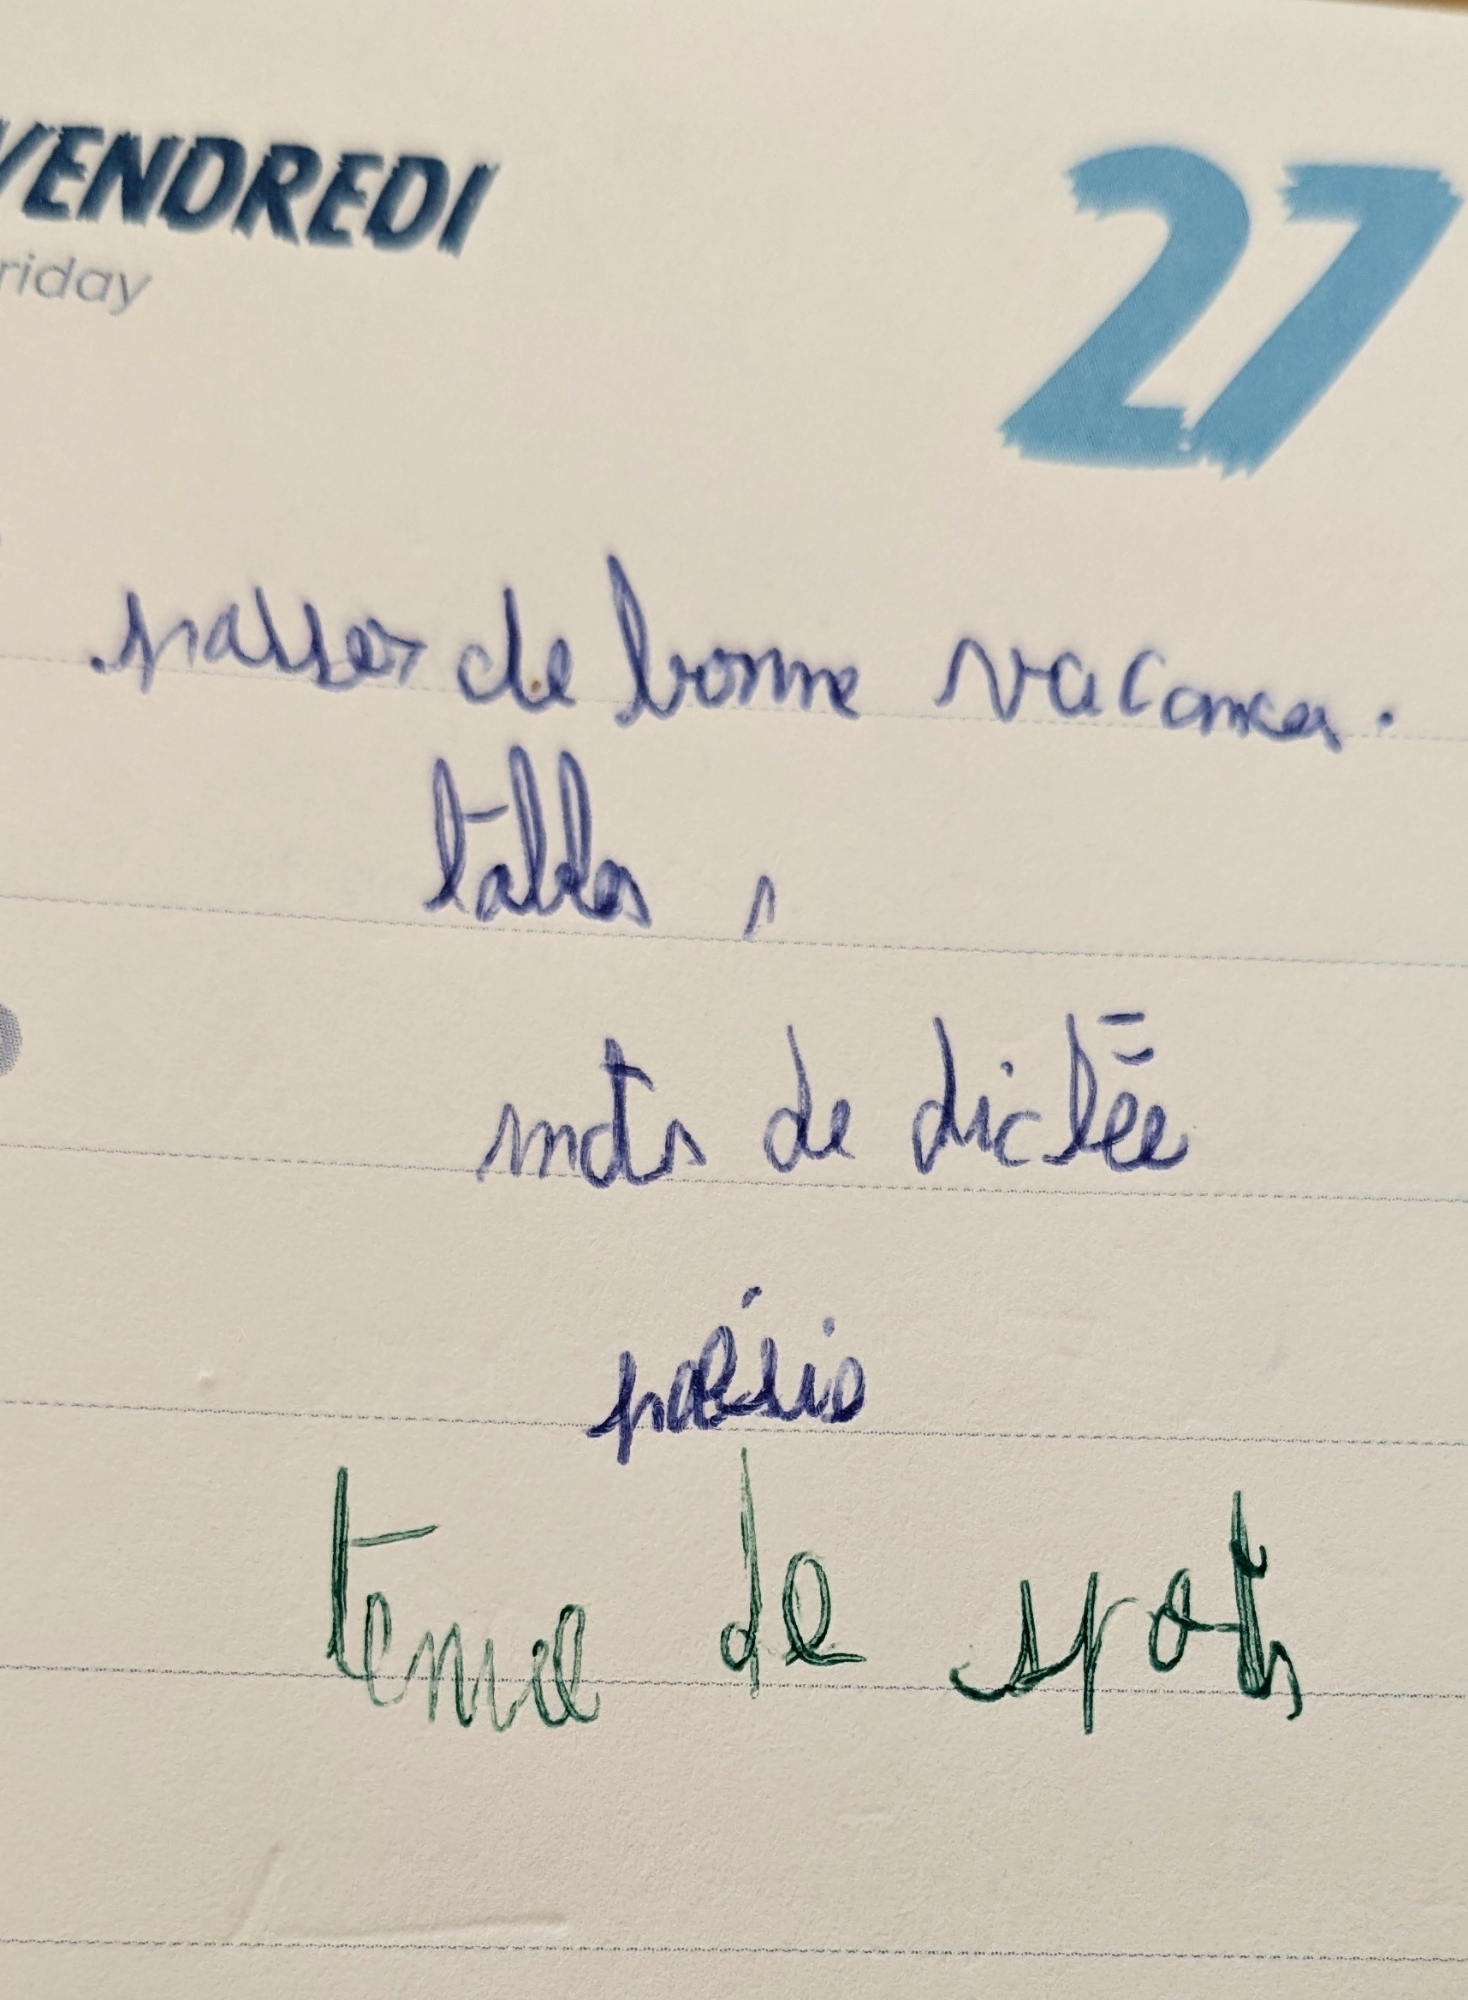 VENDREDI 27
riday
. passer de bonne vacances.
tables,
mots de dictée
poésie
tenue de spots